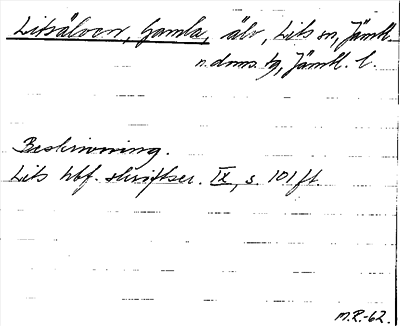 Litsälven, Gamla, älv, Lits sn, Jämtl.
n. doms. tg, Jämtl. l.
Beskrivning.
Lits hbf. skriftser. IX, s. 101 ff.
M.R.-62.